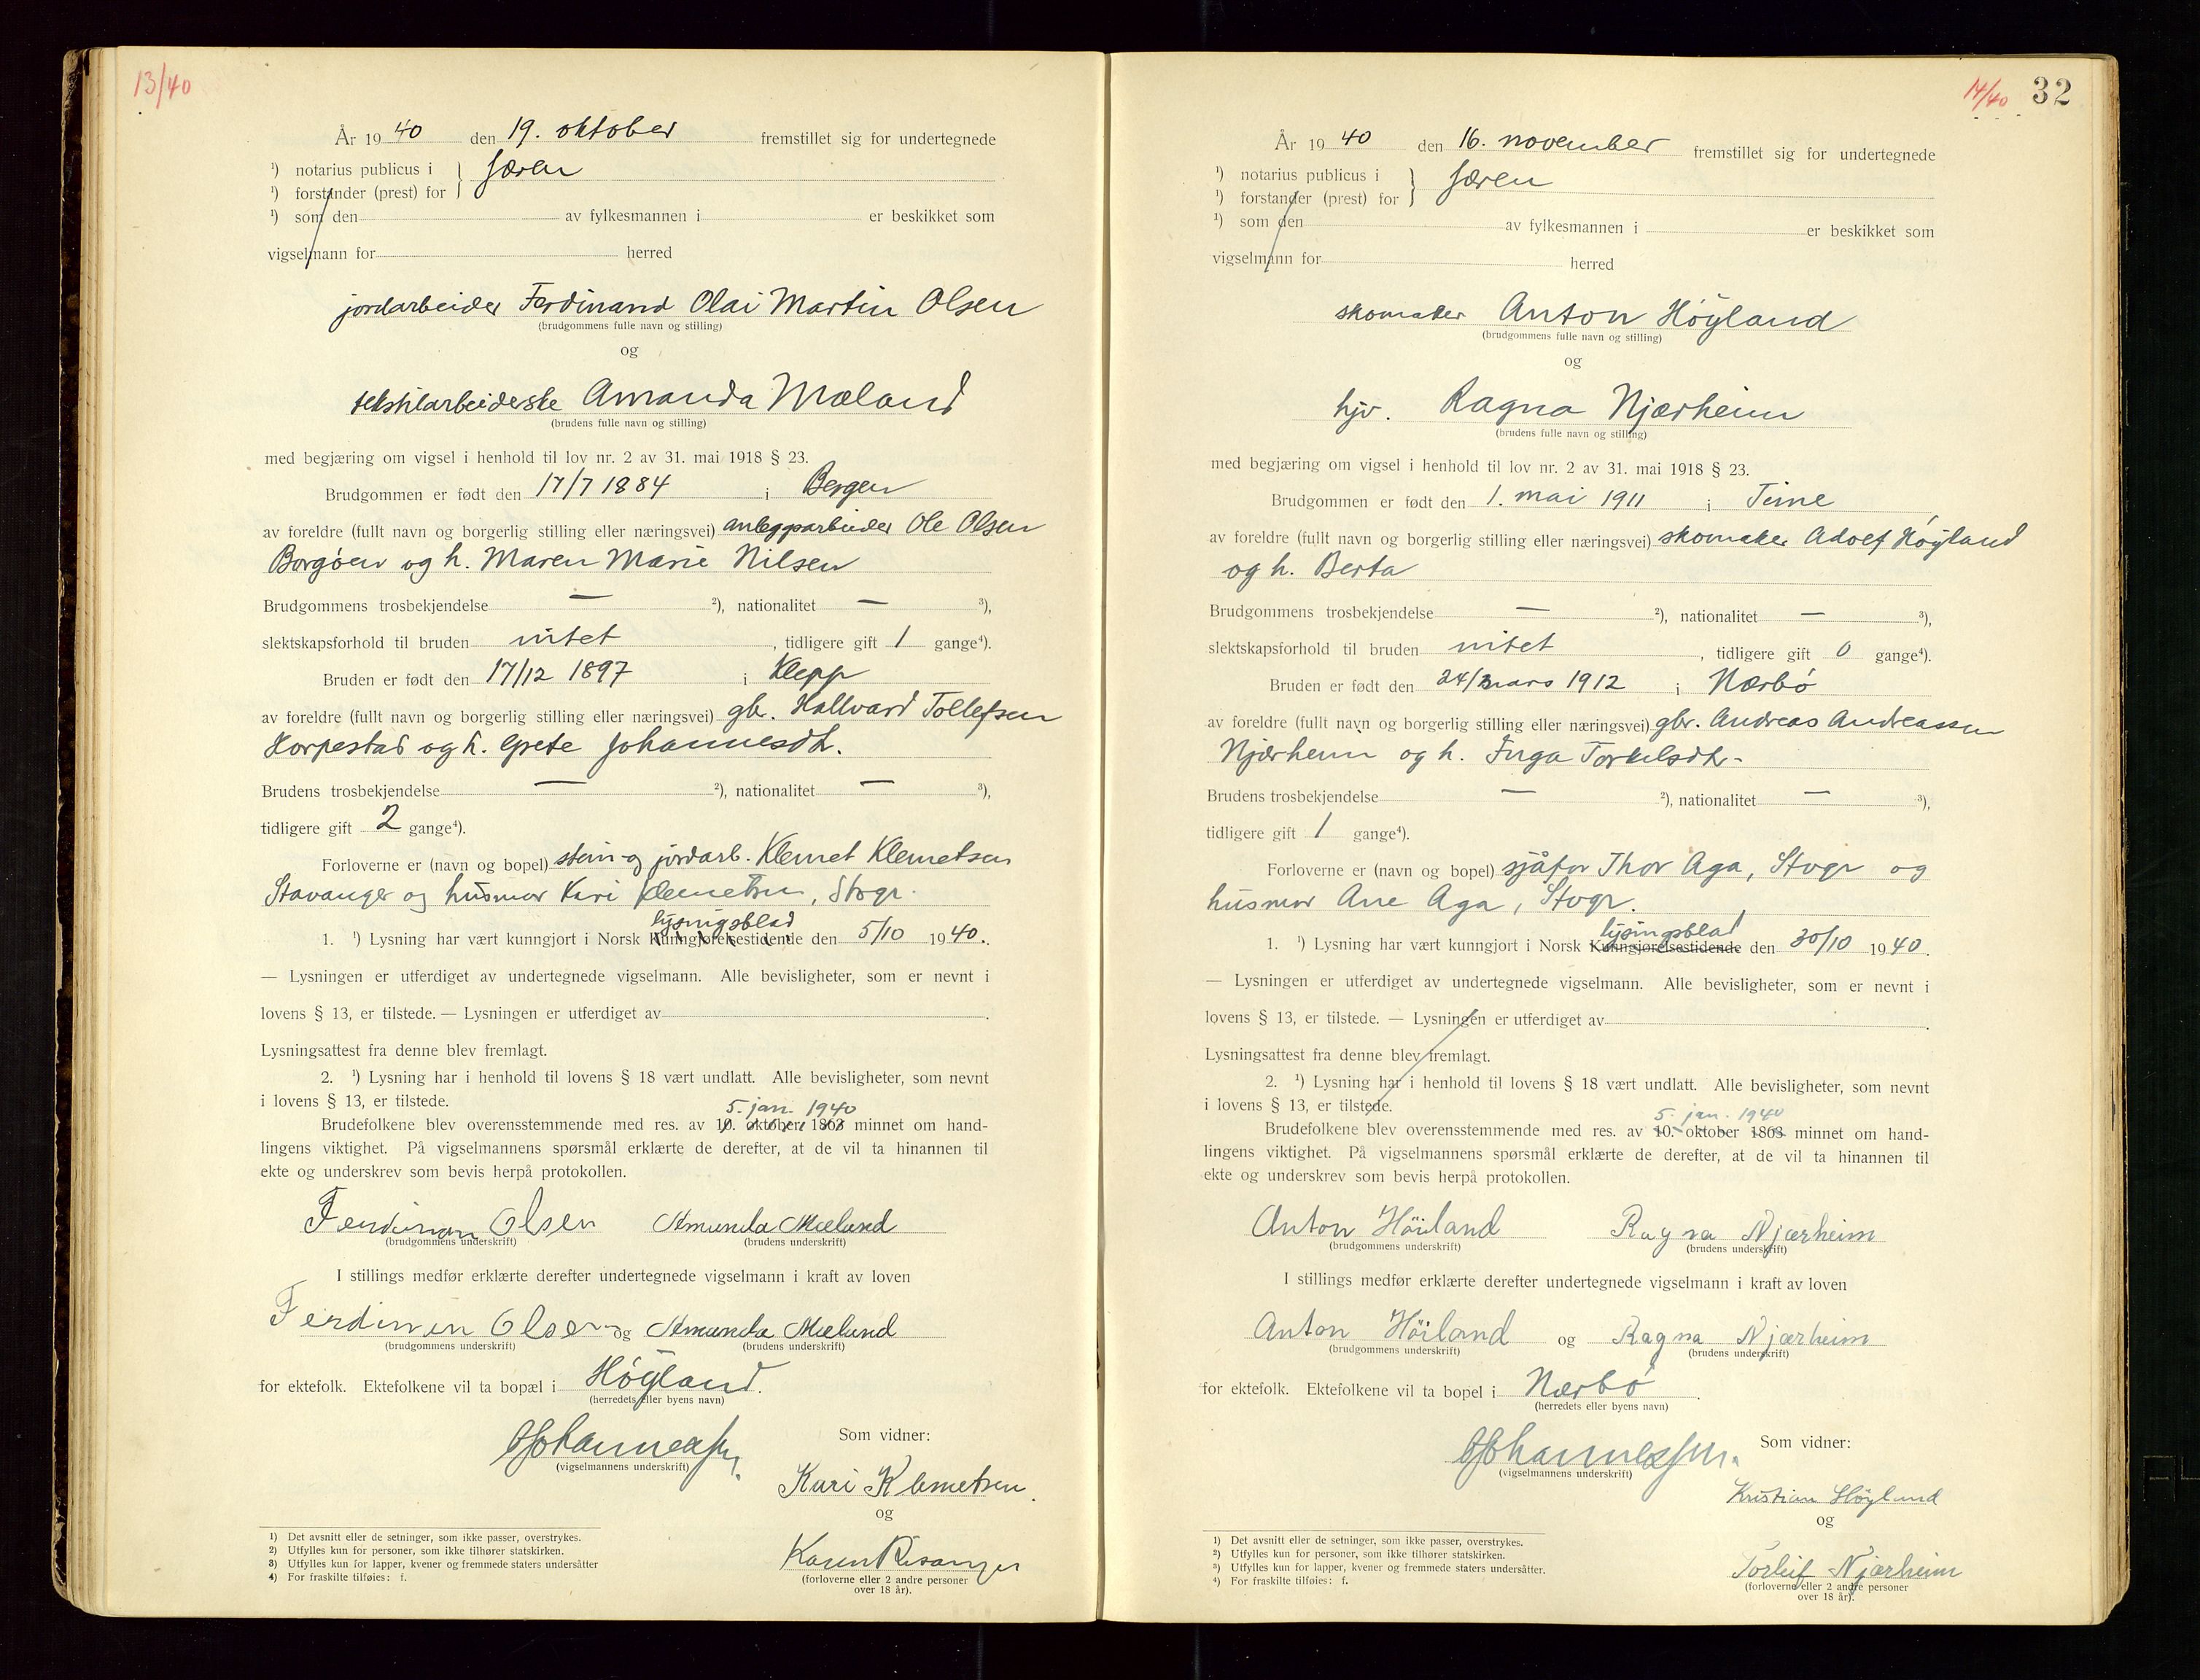 13/40
År 1940 den 19. oktober fremstillet sig for undertegnede
¹) notarius publicus i } Jæren
¹) forstander (prest) for
¹) som den av fylkesmannen i er beskikket som
vigselmann for herred
jordarbeider Ferdinand Olai Martin Olsen
(brudgommens fulle navn og stilling)
og
tekstilarbeiderske Amanda Mæland
(brudens fulle navn og stilling)
med begjæring om vigsel i henhold til lov nr. 2 av 31. mai 1918 § 23.
Brudgommen er født den 17/7 1884 i Bergen
av foreldre (fullt navn og borgerlig stilling eller næringsvei) anleggsarbeider Ole Olsen
Borgøen og h. Maren Marie Nilsen
Brudgommens trosbekjendelse — ²), nationalitet — ³),
slektskapsforhold til bruden intet, tidligere gift 1 gange⁴).
Bruden er født den 17/12 1897 i Klepp
av foreldre (fullt navn og borgerlig stilling eller næringsvei) gbr. Hallvard Tollefsen
Horpestad og h. Grete Johannesdtr.
Brudens trosbekjendelse — ²), nationalitet — ³),
tidligere gift 2 gange⁴).
Forloverne er (navn og bopel) stein og jordarb. Klemet Klemetsen
Stavanger og husmor Kari Klemetsen, Stvgr.
lysingsblad
1. ¹) Lysning har vært kunngjort i Norsk Kunngjørelsestidende den 5/10 1940.
— Lysningen er utferdiget av undertegnede vigselmann. Alle bevisligheter, som er nevnt i
lovens § 13, er tilstede. — Lysningen er utferdiget av .
Lysningsattest fra denne blev fremlagt.
2. ¹) Lysning har i henhold til lovens § 18 vært undlatt. Alle bevisligheter, som nevnt
i lovens § 13, er tilstede.
5. jan. 1940
Brudefolkene blev overensstemmende med res. av 10. oktober 1863 minnet om hand-
lingens viktighet. På vigselmannens spørsmål erklærte de derefter, at de vil ta hinannen til
ekte og underskrev som bevis herpå protokollen.
Ferdinan Olsen Amanda Mæland
(brudgommens underskrift) (brudens underskrift)
I stillings medfør erklærte derefter undertegnede vigselmann i kraft av loven
Ferdinan Olsen og Amanda Mæland
(brudgommens underskrift) (brudens underskrift)
for ektefolk. Ektefolkene vil ta bopæl i Høyland.
(herredets eller byens navn)
Johannessen.
(vigselmannens underskrift)
Som vidner:
Kari Klemetsen.
og
Karen Risanger
(forloverne eller 2 andre personer
over 18 år).
¹) Det avsnitt eller de setninger, som ikke passer, overstrykes.
2) Utfylles kun for personer, som ikke tilhører statskirken.
3) Utfylles kun for lapper, kvener og fremmede staters undersåtter
4) For fraskilte tilføies: f.
14/40 32
År 1940 den 16. november fremstillet sig for undertegnede
¹) notarius publicus i } Jæren
¹) forstander (prest) for
¹) som den av fylkesmannen i er beskikket som
vigselmann for herred
skomaker Anton Høyland
(brudgommens fulle navn og stilling)
og
hjv. Ragna Njærheim
(brudens fulle navn og stilling)
med begjæring om vigsel i henhold til lov nr. 2 av 31. mai 1918 § 23.
Brudgommen er født den 1. mai 1911 i Time
av foreldre (fullt navn og borgerlig stilling eller næringsvei) skomaker Adolf Høyland
og h. Berta
Brudgommens trosbekjendelse — ²), nationalitet — ³),
slektskapsforhold til bruden intet, tidligere gift 0 gange⁴).
Bruden er født den 24/mars 1912 i Nærbø
av foreldre (fullt navn og borgerlig stilling eller næringsvei) gbr. Andreas Andreassen
Njærheim og h. Inga Torkelsdtr.
Brudens trosbekjendelse — ²), nationalitet — ³),
tidligere gift 1 gange⁴).
Forloverne er (navn og bopel) sjåfør Thor Aga, Stvgr og
husmor Ane Aga, Stvgr.
lysingsblad
1. ¹) Lysning har vært kunngjort i Norsk Kunngjørelsestidende den 30/10 1940.
— Lysningen er utferdiget av undertegnede vigselmann. Alle bevisligheter, som er nevnt i
lovens § 13, er tilstede. — Lysningen er utferdiget av .
Lysningsattest fra denne blev fremlagt.
2. ¹) Lysning har i henhold til lovens § 18 vært undlatt. Alle bevisligheter, som nevnt
i lovens § 13, er tilstede.
5. jan. 1940
Brudefolkene blev overensstemmende med res. av 10. oktober 1863 minnet om hand-
lingens viktighet. På vigselmannens spørsmål erklærte de derefter, at de vil ta hinannen til
ekte og underskrev som bevis herpå protokollen.
Anton Höiland Ragna Njærheim
(brudgommens underskrift) (brudens underskrift)
I stillings medfør erklærte derefter undertegnede vigselmann i kraft av loven
Anton Höiland og Ragna Njærheim
(brudgommens underskrift) (brudens underskrift)
for ektefolk. Ektefolkene vil ta bopel i Nærbø.
(herredets eller byens navn)
Johannessen.
(vigselmannens underskrift)
Som vidner:
Kristian Høyland
og
Torleif Njærheim
(forloverne eller 2 andre personer
over 18 år).
¹) Det avsnitt eller de setninger, som ikke passer, overstrykes.
²) Utfylles kun for personer, som ikke tilhører statskirken.
³) Utfylles kun for lapper, kvener og fremmede staters undersåtter.
⁴) For fraskilte tilføies: f.